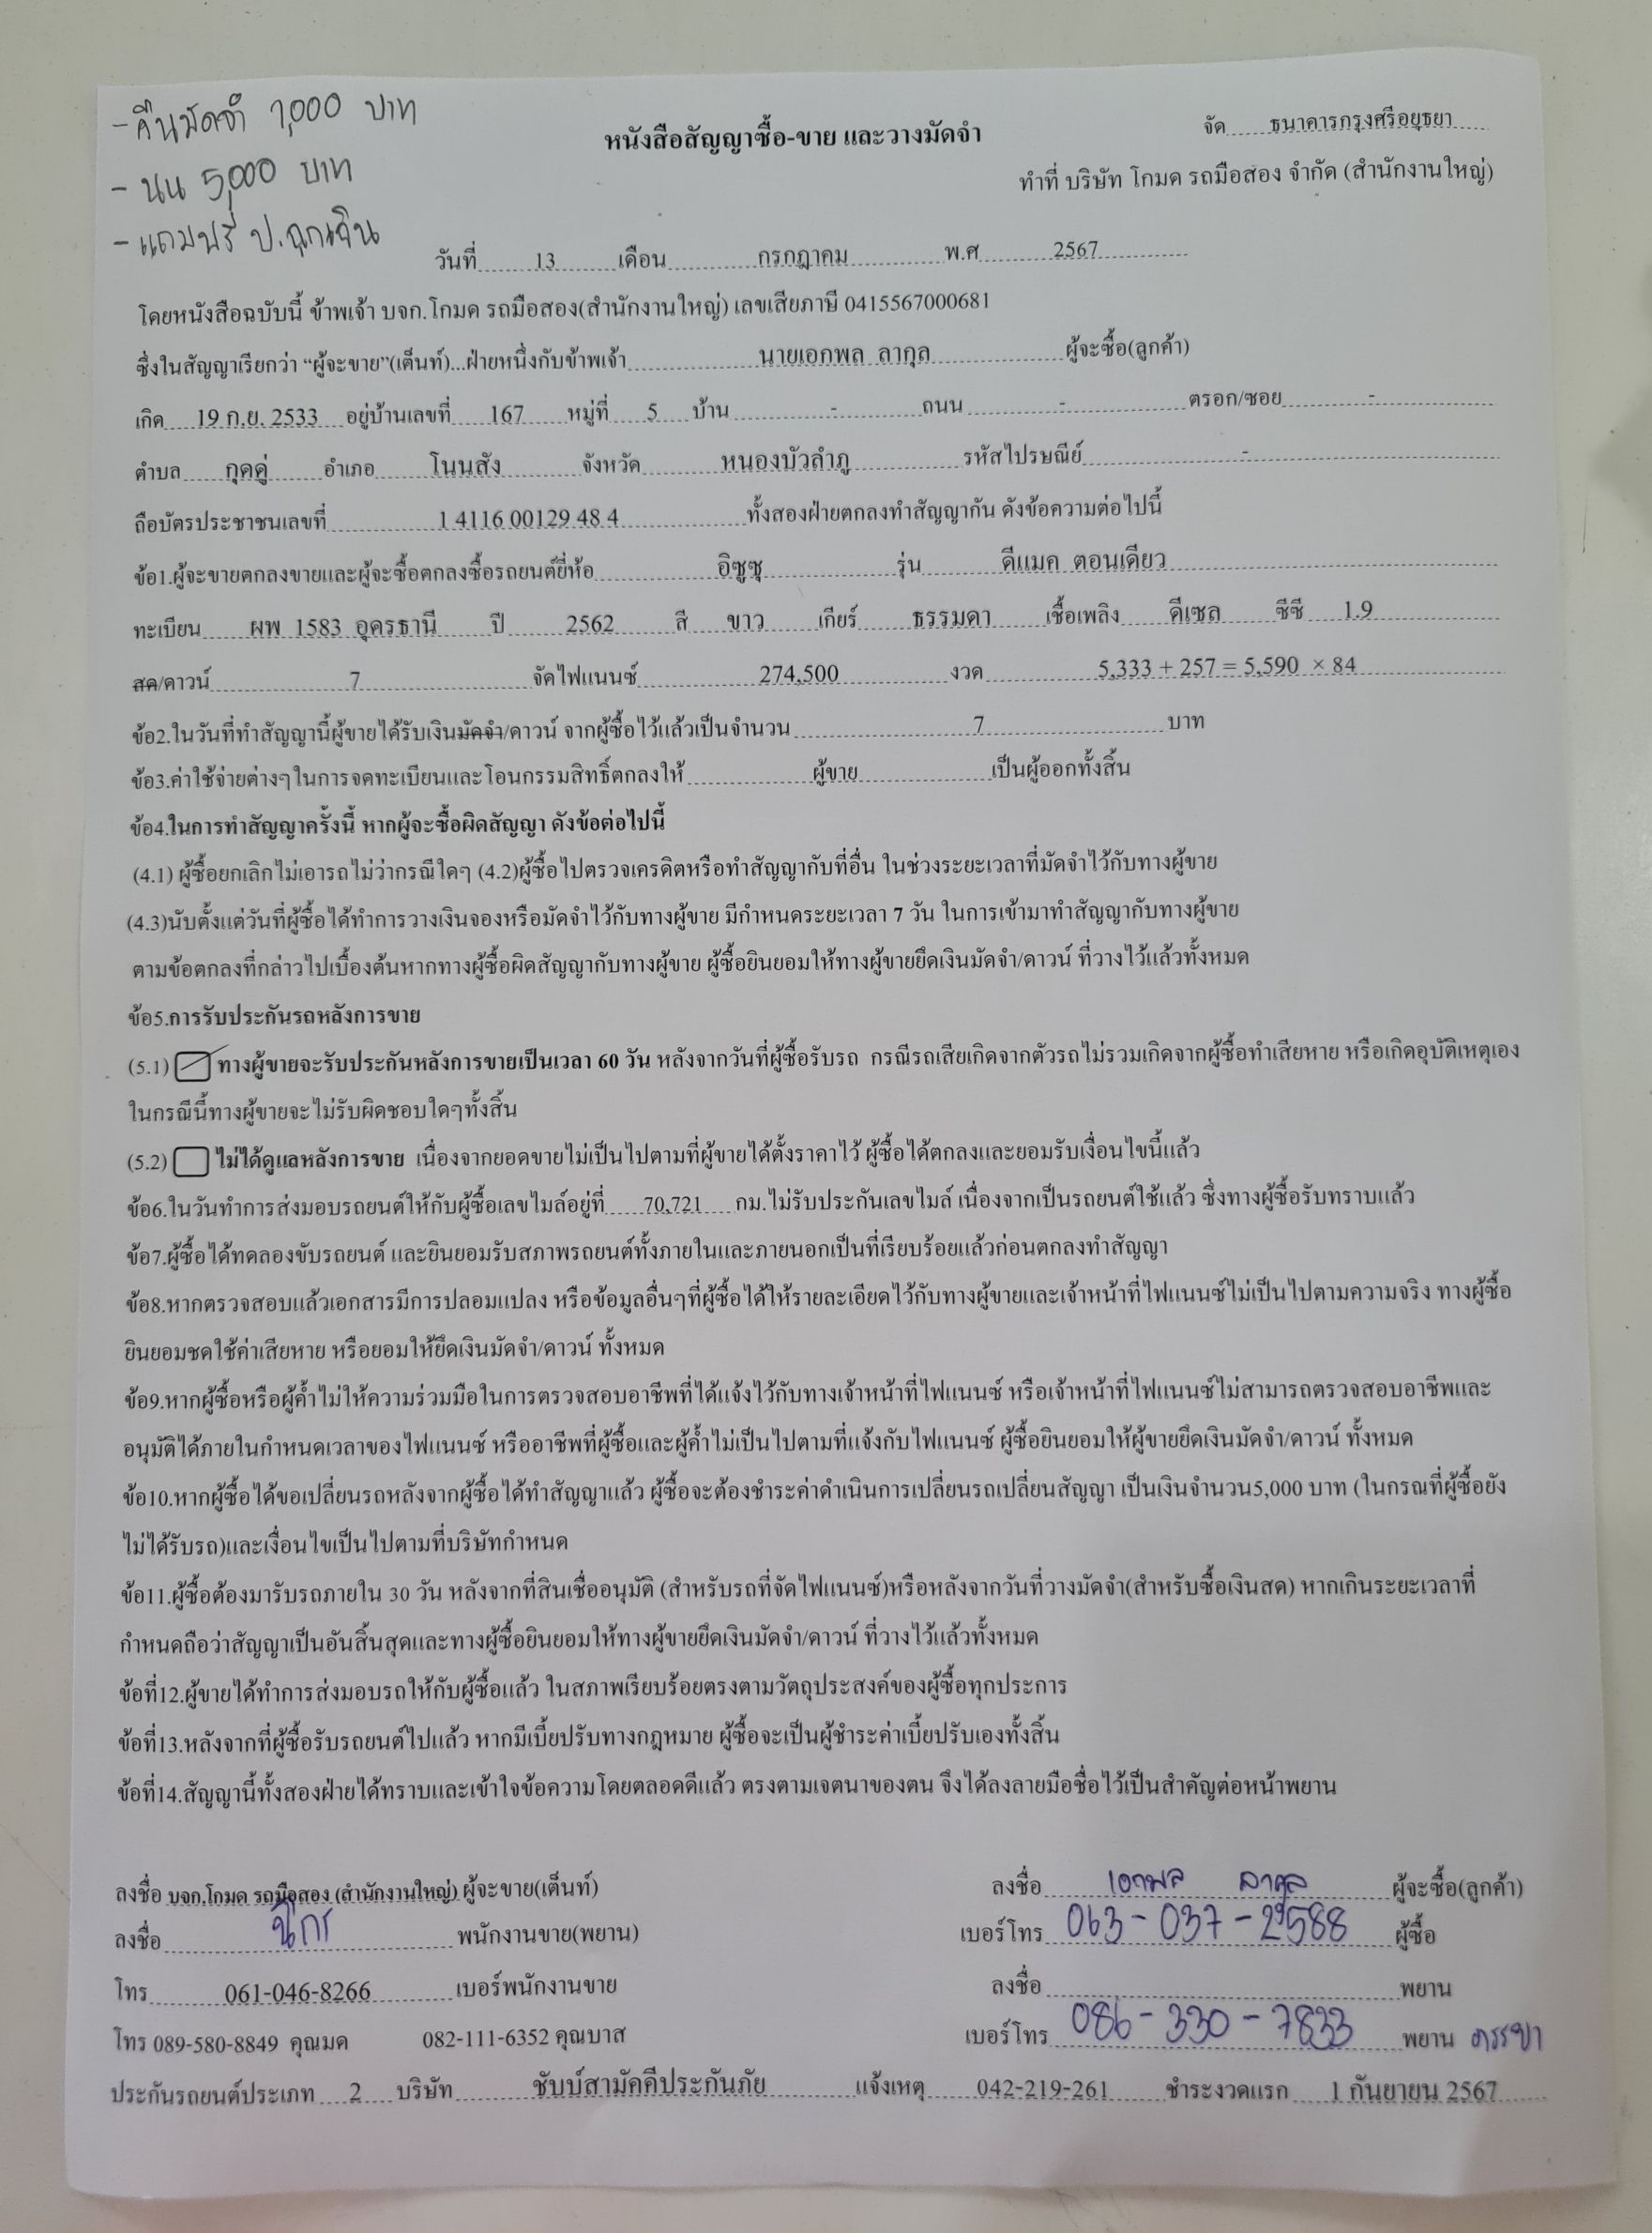 - คืนมัดจำ 1,000 บาท
- นน 5,000 บาท
- แถมฟรี ป.ฉุกเฉิน
จัด ธนาคารกรุงศรีอยุธยา
หนังสือสัญญาซื้อ-ขาย และวางมัดจำ
ทำที่ บริษัท โกมค รถมือสอง จำกัด (สำนักงานใหญ่)
วันที่ 13 เดือน กรกฎาคม พ.ศ 2567
โดยหนังสือฉบับนี้ ข้าพเจ้า บจก.โกมค รถมือสอง(สำนักงานใหญ่) เลขเสียภาษี 0415567000681
ซึ่งในสัญญาเรียกว่า “ผู้จะขาย”(เต็นท์)...ฝ่ายหนึ่งกับข้าพเจ้า นายเอกพล ลากุล ผู้จะซื้อ(ลูกค้า)
เกิด 19 ก.ย. 2533 อยู่บ้านเลขที่ 167 หมู่ที่ 5 บ้าน - ถนน - ตรอก/ซอย -
ตำบล กุดคู่ อำเภอ โนนสัง จังหวัด หนองบัวลำภู รหัสไปรษณีย์ -
ถือบัตรประชาชนเลขที่ 1 4116 00129 48 4 ทั้งสองฝ่ายตกลงทำสัญญากัน ดังข้อความต่อไปนี้
ข้อ1.ผู้จะขายตกลงขายและผู้จะซื้อตกลงซื้อรถยนต์ยี่ห้อ อิซูซุ รุ่น ดีแมค ตอนเดียว
ทะเบียน ผพ 1583 อุดรธานี ปี 2562 สี ขาว เกียร์ ธรรมดา เชื้อเพลิง ดีเซล ซีซี 1.9
สด/ดาวน์ 7 จัดไฟแนนซ์ 274,500 งวด 5,333 + 257 = 5,590 × 84
ข้อ2.ในวันที่ทำสัญญานี้ผู้ขายได้รับเงินมัดจำ/ดาวน์ จากผู้ซื้อไว้แล้วเป็นจำนวน 7 บาท
ข้อ3.ค่าใช้จ่ายต่างๆในการจดทะเบียนและโอนกรรมสิทธิ์ตกลงให้ ผู้ขาย เป็นผู้ออกทั้งสิ้น
ข้อ4.ในการทำสัญญาครั้งนี้ หากผู้จะซื้อผิดสัญญา ดังข้อต่อไปนี้
(4.1) ผู้ซื้อยกเลิกไม่เอารถไม่ว่ากรณีใดๆ (4.2)ผู้ซื้อไปตรวจเครดิตหรือทำสัญญากับที่อื่น ในช่วงระยะเวลาที่มัดจำไว้กับทางผู้ขาย
(4.3)นับตั้งแต่วันที่ผู้ซื้อได้ทำการวางเงินจองหรือมัดจำไว้กับทางผู้ขาย มีกำหนดระยะเวลา 7 วัน ในการเข้ามาทำสัญญากับทางผู้ขาย
ตามข้อตกลงที่กล่าวไปเบื้องต้นหากทางผู้ซื้อผิดสัญญากับทางผู้ขาย ผู้ซื้อยินยอมให้ทางผู้ขายยึดเงินมัดจำ/ดาวน์ ที่วางไว้แล้วทั้งหมด
ข้อ5.การรับประกันรถหลังการขาย
(5.1) ทางผู้ขายจะรับประกันหลังการขายเป็นเวลา 60 วัน หลังจากวันที่ผู้ซื้อรับรถ กรณีรถเสียเกิดจากตัวรถไม่รวมเกิดจากผู้ซื้อทำเสียหาย หรือเกิดอุบัติเหตุเอง
ในกรณีนี้ทางผู้ขายจะไม่รับผิดชอบใดๆทั้งสิ้น
(5.2) ไม่ได้ดูแลหลังการขาย เนื่องจากยอดขายไม่เป็นไปตามที่ผู้ขายได้ตั้งราคาไว้ ผู้ซื้อได้ตกลงและยอมรับเงื่อนไขนี้แล้ว
ข้อ6.ในวันทำการส่งมอบรถยนต์ให้กับผู้ซื้อเลขไมล์อยู่ที่ 70,721 กม.ไม่รับประกันเลขไมล์ เนื่องจากเป็นรถยนต์ใช้แล้ว ซึ่งทางผู้ซื้อรับทราบแล้ว
ข้อ7.ผู้ซื้อได้ทดลองขับรถยนต์ และยินยอมรับสภาพรถยนต์ทั้งภายในและภายนอกเป็นที่เรียบร้อยแล้วก่อนตกลงทำสัญญา
ข้อ8.หากตรวจสอบแล้วเอกสารมีการปลอมแปลง หรือข้อมูลอื่นๆที่ผู้ซื้อได้ให้รายละเอียดไว้กับทางผู้ขายและเจ้าหน้าที่ไฟแนนซ์ไม่เป็นไปตามความจริง ทางผู้ซื้อ
ยินยอมชดใช้ค่าเสียหาย หรือยอมให้ยึดเงินมัดจำ/ดาวน์ ทั้งหมด
ข้อ9.หากผู้ซื้อหรือผู้ค้ำไม่ให้ความร่วมมือในการตรวจสอบอาชีพที่ได้แจ้งไว้กับทางเจ้าหน้าที่ไฟแนนซ์ หรือเจ้าหน้าที่ไฟแนนซ์ไม่สามารถตรวจสอบอาชีพและ
อนุมัติได้ภายในกำหนดเวลาของไฟแนนซ์ หรืออาชีพที่ผู้ซื้อและผู้ค้ำไม่เป็นไปตามที่แจ้งกับไฟแนนซ์ ผู้ซื้อยินยอมให้ผู้ขายยึดเงินมัดจำ/ดาวน์ ทั้งหมด
ข้อ10.หากผู้ซื้อได้ขอเปลี่ยนรถหลังจากผู้ซื้อได้ทำสัญญาแล้ว ผู้ซื้อจะต้องชำระค่าดำเนินการเปลี่ยนรถเปลี่ยนสัญญา เป็นเงินจำนวน5,000 บาท (ในกรณที่ผู้ซื้อยัง
ไม่ได้รับรถ)และเงื่อนไขเป็นไปตามที่บริษัทกำหนด
ข้อ11.ผู้ซื้อต้องมารับรถภายใน 30 วัน หลังจากที่สินเชื่ออนุมัติ (สำหรับรถที่จัดไฟแนนซ์)หรือหลังจากวันที่วางมัดจำ(สำหรับซื้อเงินสด) หากเกินระยะเวลาที่
กำหนดถือว่าสัญญาเป็นอันสิ้นสุดและทางผู้ซื้อยินยอมให้ทางผู้ขายยึดเงินมัดจำ/ดาวน์ ที่วางไว้แล้วทั้งหมด
ข้อที่12.ผู้ขายได้ทำการส่งมอบรถให้กับผู้ซื้อแล้ว ในสภาพเรียบร้อยตรงตามวัตถุประสงค์ของผู้ซื้อทุกประการ
ข้อที่13.หลังจากที่ผู้ซื้อรับรถยนต์ไปแล้ว หากมีเบี้ยปรับทางกฎหมาย ผู้ซื้อจะเป็นผู้ชำระค่าเบี้ยปรับเองทั้งสิ้น
ข้อที่14.สัญญานี้ทั้งสองฝ่ายได้ทราบและเข้าใจข้อความโดยตลอดดีแล้ว ตรงตามเจตนาของตน จึงได้ลงลายมือชื่อไว้เป็นสำคัญต่อหน้าพยาน
ลงชื่อ บจก.โกมค รถมือสอง (สำนักงานใหญ่) ผู้จะขาย(เต็นท์) ลงชื่อ เอกพล ลากุล ผู้จะซื้อ(ลูกค้า)
ลงชื่อ นิกร พนักงานขาย(พยาน) เบอร์โทร 063-037-2588 ผู้ซื้อ
โทร 061-046-8266 เบอร์พนักงานขาย ลงชื่อ พยาน
โทร 089-580-8849 คุณมด 082-111-6352 คุณบาส เบอร์โทร 086-330-7833 พยาน ภรรยา
ประกันรถยนต์ประเภท 2 บริษัท ชับบ์สามัคคีประกันภัย แจ้งเหตุ 042-219-261 ชำระงวดแรก 1 กันยายน 2567